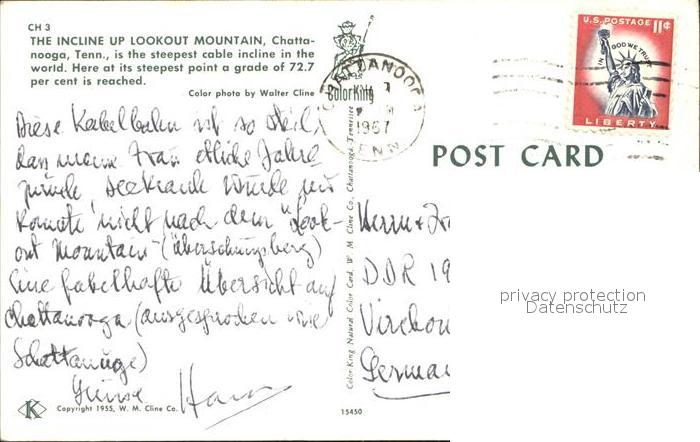 CH 3
THE INCLINE UP LOOKOUT MOUNTAIN, Chatta-
nooga, Tenn., is the steepest cable incline in the
world. Here at its steepest point a grade of 72.7
per cent is reached.
Color photo by Walter Cline
ColorKing
CHATTANOOGA
1967
TENN
U.S. POSTAGE 11¢
IN GOD WE TRUST
LIBERTY
POST CARD
Diese Kabelbahn ist so steil,
dass meine Frau etliche Jahre
zurück, seekrank wurde und
konnte nicht nach dem "Look-
out Mountain" (überschungsberg)
Eine fabelhafte Übersicht auf
Chattanooga (ausgesprochen wie
Schattanuge)
Grüsse Hans
Color King Natural Color Card, W. M. Cline Co., Chattanooga, Tennessee
Herrn + Fr
DDR 19
Virchow
German
privacy protection
Datenschutz
K
Copyright 1955, W. M. Cline Co.
15450